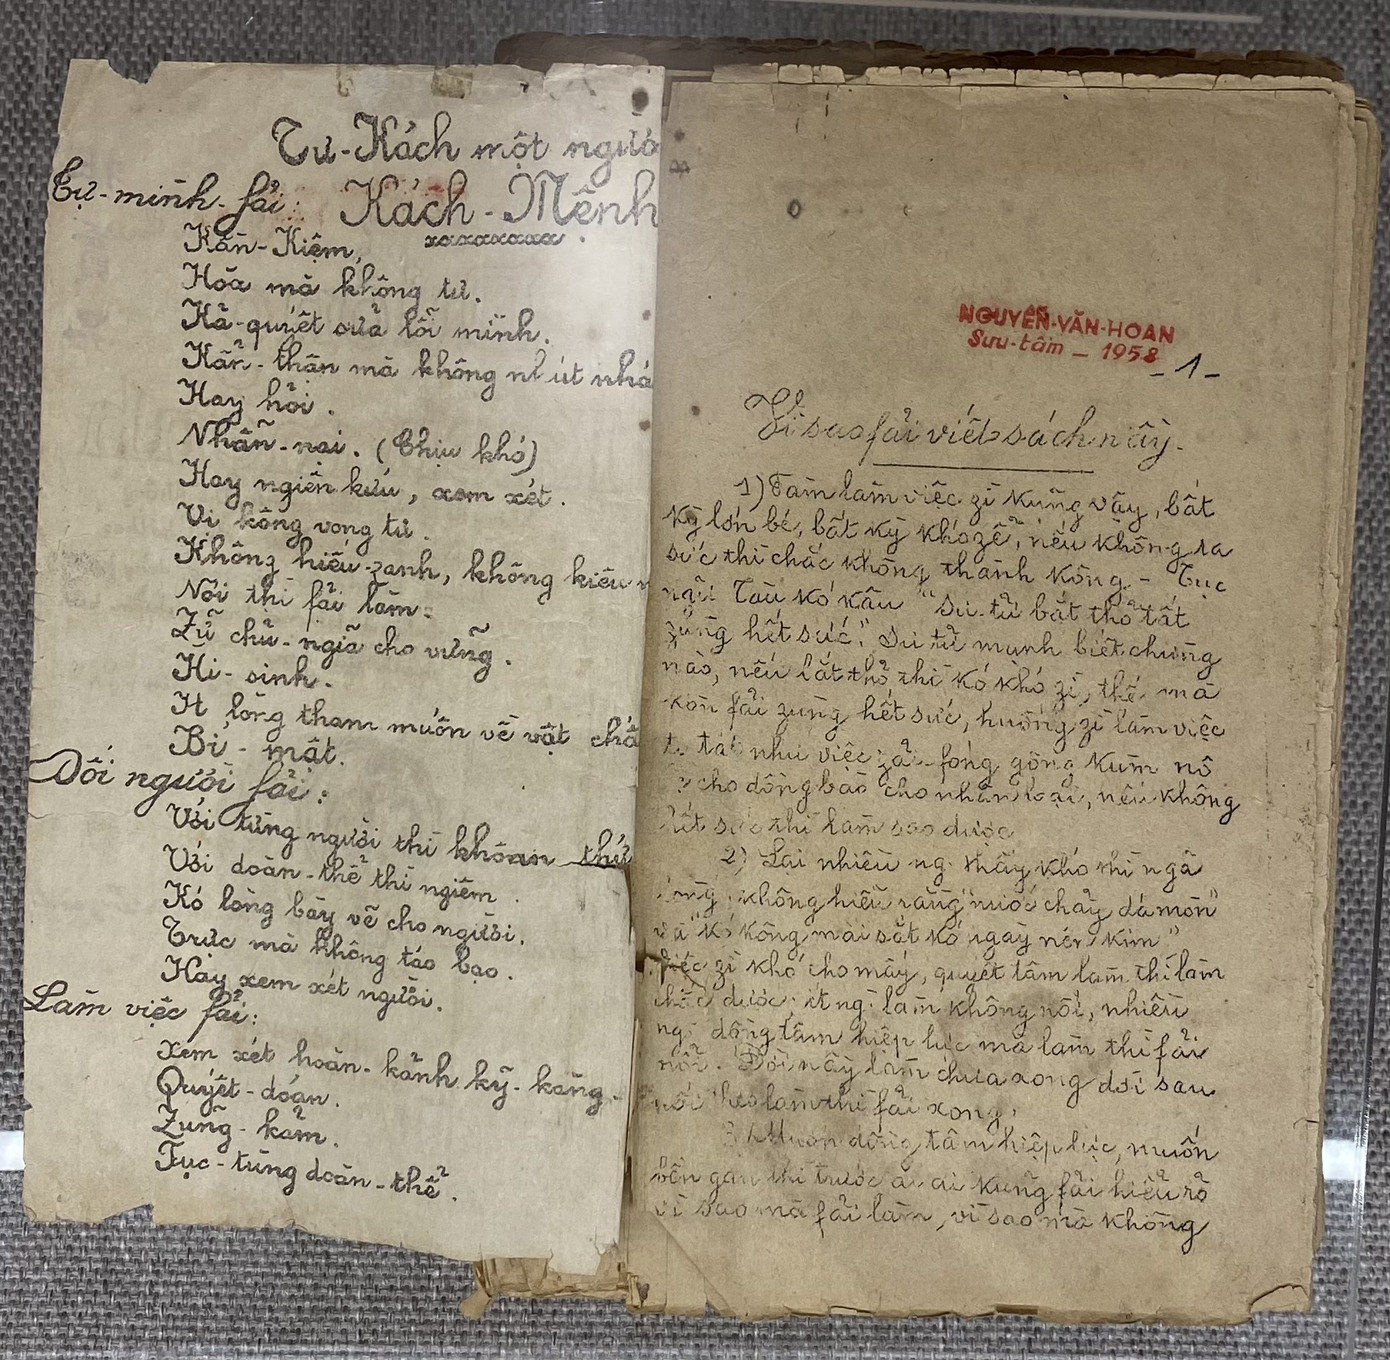 Tư-Kách một ngườ
Kách-Mệnh
Tự-mình-fải:
Kần-Kiệm,
Hòa mà không tư.
Kả-quyết sửa lỗi mình.
Kẩn-thận mà không nhút nhá
Hay hỏi.
Nhẫn-nại. (Chịu khó)
Hay ngiên kứu, xem xét.
Vị kông vong tư.
Không hiếu-zanh, không kiêu n
Nói thì fải làm:
Zữ chủ-ngĩa cho vững.
Hi-sinh.
Ít lòng tham muốn về vật chấ
Bí-mật.
Đối người fải:
Với từng người thì khoan thứ
Với đoàn-thể thì ngiêm.
Kó lòng bày vẽ cho người.
Trực mà không táo bạo.
Hay xem xét người.
Làm việc fải:
Xem xét hoàn-kảnh kỹ-kàng
Quyết-đoán.
Zũng-kảm.
Fục-tùng đoàn-thể.
NGUYỄN-VĂN-HOAN
Sưu-tầm - 1958
-1-
Vì sao fải viết sách nầy.
1) Fàm làm việc zì kũng vậy, bất
kỳ lớn bé, bất kỳ khó zễ, nếu không ra
sức thì chắc không thành kông. - Tục
ngữ Tàu kó kâu "Sư-tử bắt thỏ tất
zùng hết sức". Sư tử mạnh biết chừng
nào, nếu bắt thỏ thì kó khó zì, thế mà
kòn fải zùng hết sức, huống zì làm việc
to tát như việc zải-fóng gông kùm nô
cho đồng bào cho nhân loại, nếu không
hết sức thì làm sao được
2) Lại nhiều ng. thấy khó thì ngã
lòng, không hiểu rằng "nước chảy đá mòn"
và "kó kông mài sắt kó ngày nên kim"
Việc zì khó cho mấy, quyết tâm làm thì làm
chắc được; ít ng. làm không nổi, nhiều
ng. đồng tâm hiệp lực mà làm thì fải
nổi. Đời nầy làm chưa xong đời sau
nối theo làm thì fải xong.
3) Muốn đồng tâm hiệp lực, muốn
bền gan thì trước ai ai kũng fải hiểu rõ
vì sao mà fải làm, vì sao mà không